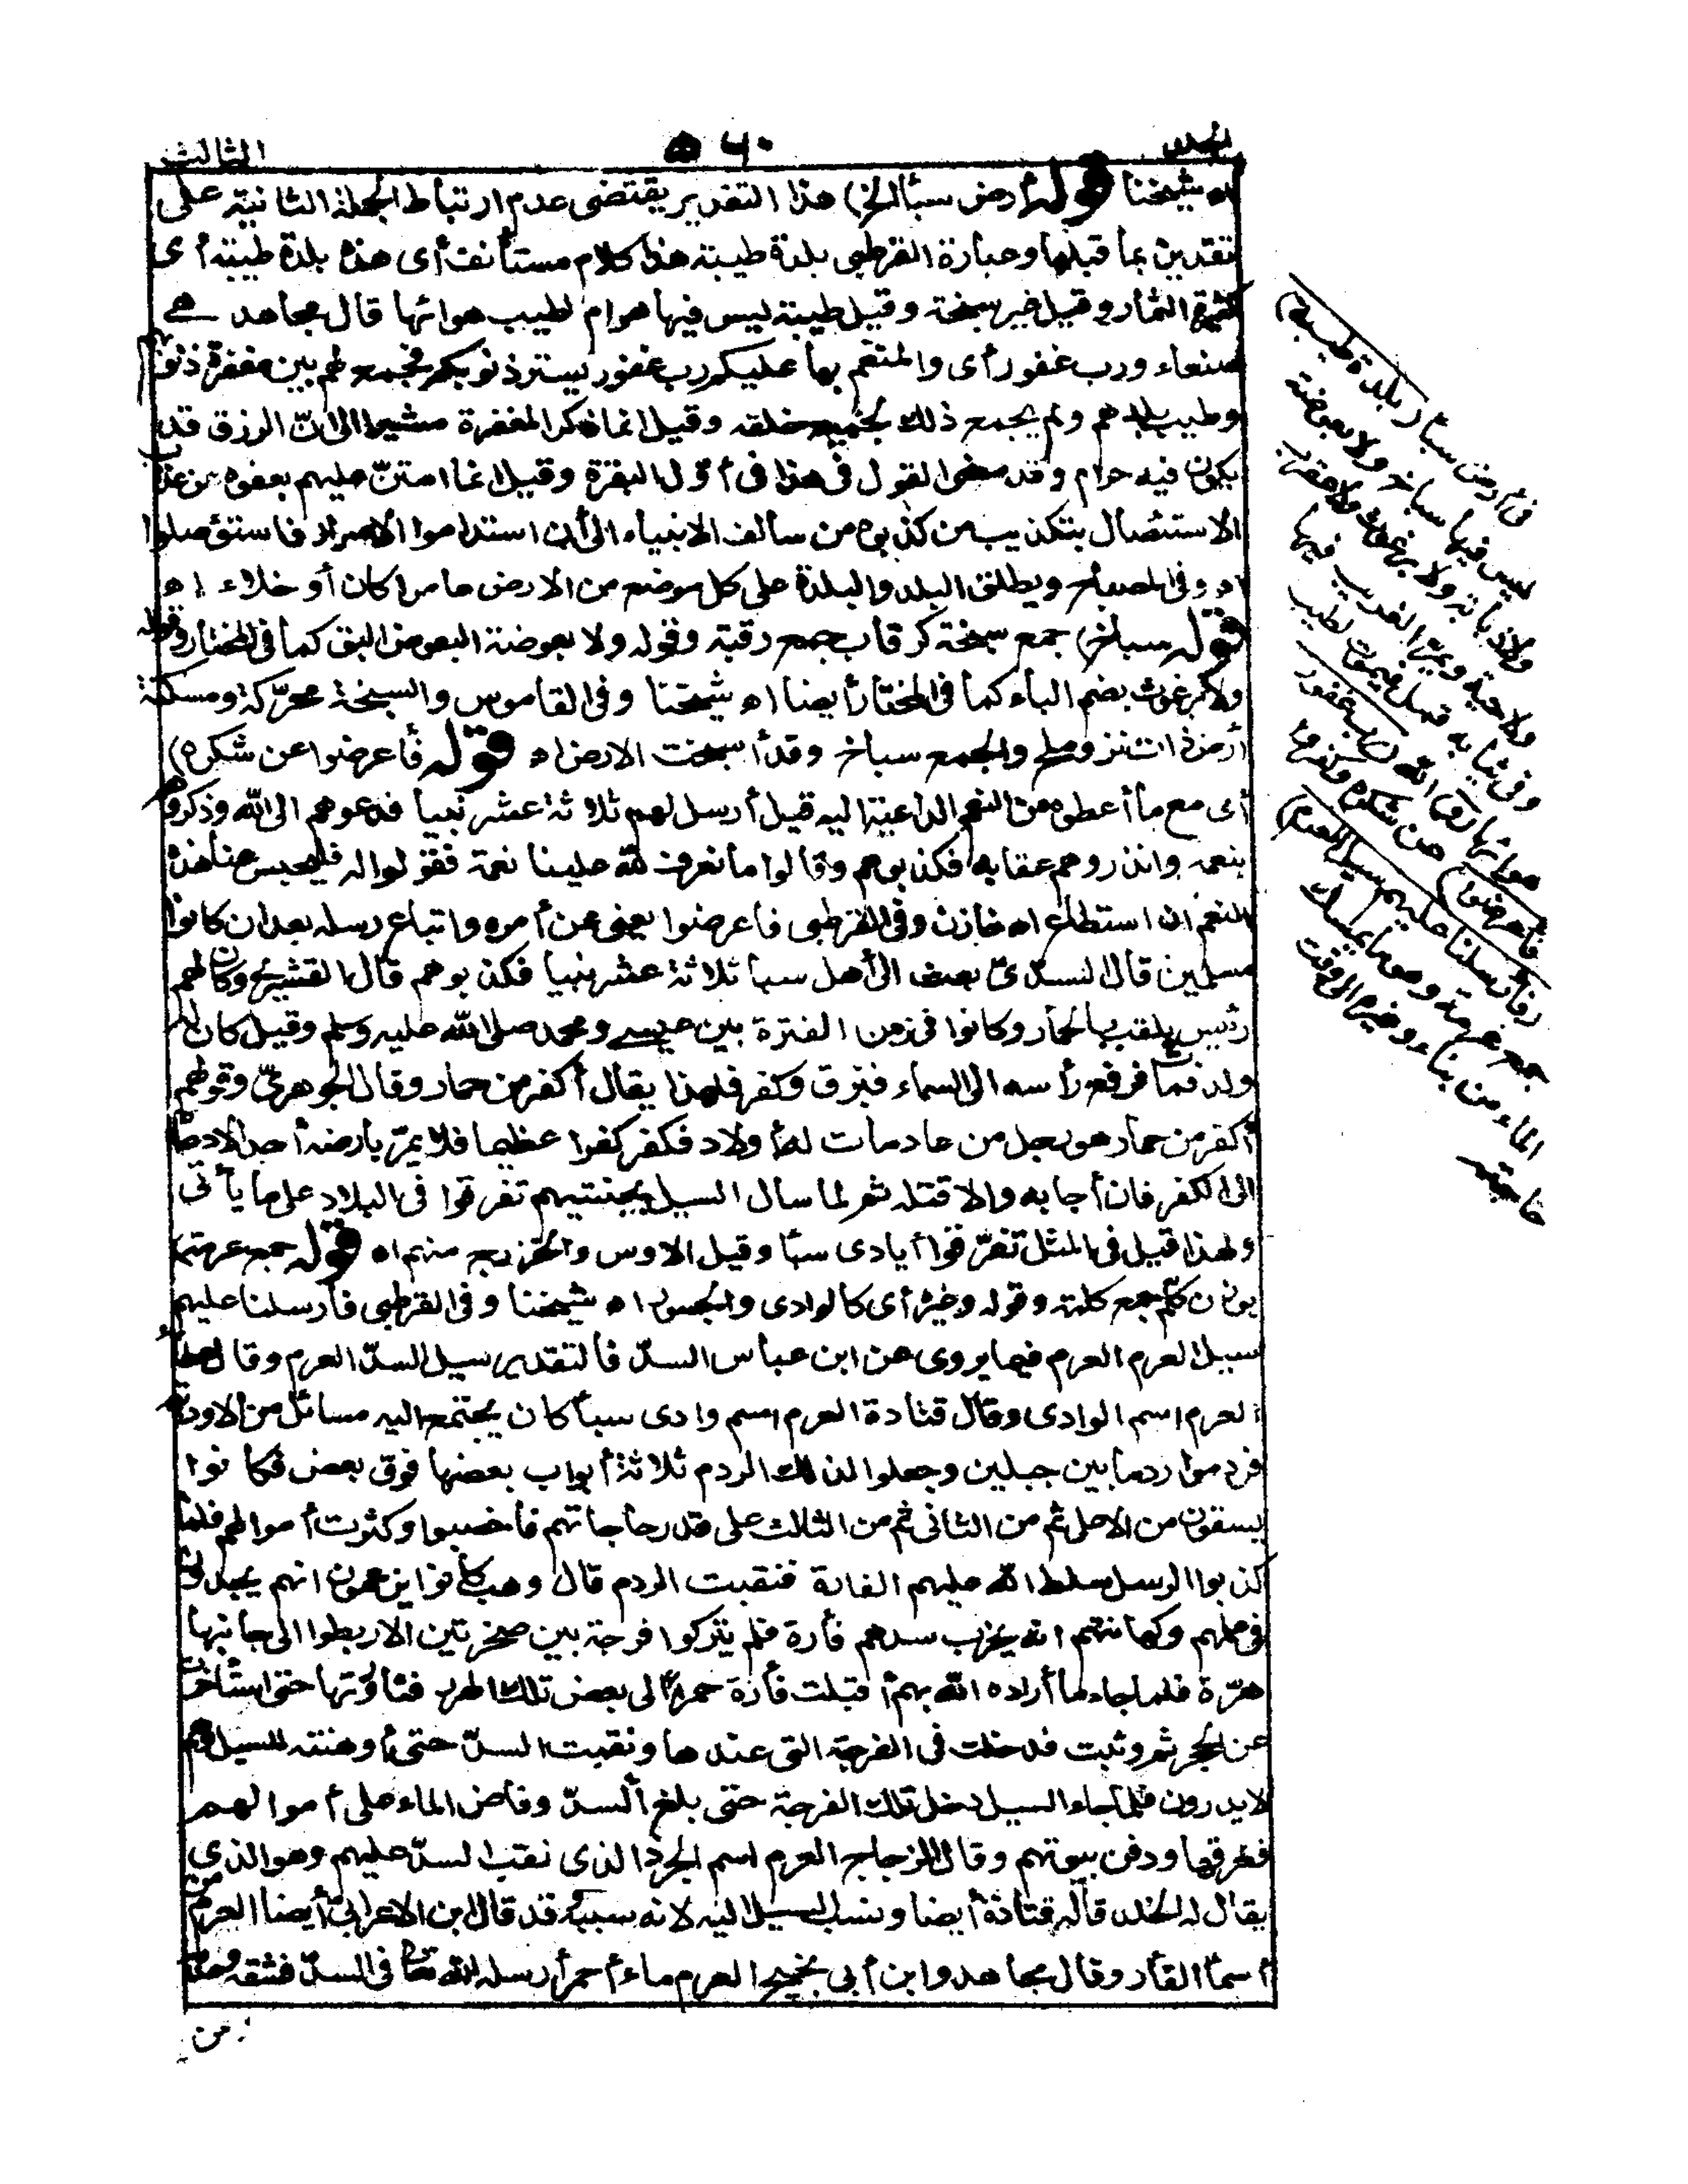 الجلد
٥٦٠
الثالث
اه شيخنا قوله أرض سبأ الخ) هذا التقدير يقتضى عدم ارتباط الجملة الثانية على
تقديرين بما قبلها وعبارة القرطبى بلدة طيبة هذا كلام مستأنف أى هذه بلدة طيبة أى
كثيرة الثمار وقيل غير سبخة وقيل طيبة ليس فيها هوام لطيب هوائها قال مجاهد هى
صنعاء ورب غفور أى والمنعم بها عليكم رب غفور يستر ذنوبكم فجمع لهم بين مغفرة ذنوبهم
وطيب بلدهم ولم يجمع ذلك لجميع خلقه وقيل انما ذكر المغفرة مشيرا الى انّ الرزق قد
يكون فيه حرام وقد مضى القول فى هذا فى أوّل البقرة وقيل انما امتنّ عليهم بعفوه عن عذاب
الاستئصال بتكذيب من كذبوه من سالف الانبياء الى أن استداموا الاصرار فاستؤصلوا
اه وفى المصباح ويطلق البلد والبلدة على كل موضع من الارض عامرا كان أو خلاء اه
قوله سباخ) جمع سبخة كرقاب جمع رقبة وقوله ولا بعوضة البعوض البق كما فى المختار وقوله
ولا برغوث بضم الباء كما فى المختار أيضا اه شيخنا وفى القاموس والسبخة محرّكة ومسكنة
أرض ذات نز وملح والجمع سباخ وقد أسبخت الارض اه قوله فأعرضوا عن شكره)
أى مع ما أعطوه من النعم الداعية اليه قيل أرسل لهم ثلاثة عشر نبيا فدعوهم الى الله وذكروهم
بنعمه وانذروهم عقابه فكذبوهم وقالوا ما نعرف لله علينا نعمة فقولوا له فليحبس عنا هذه
النعم ان استطاع اه خازن وفى القرطبى فاعرضوا يعنى عن أمره واتباع رسله بعد ان كانوا
مسلمين قال السدّىّ بعث الى أهل سبا ثلاثة عشر نبيا فكذبوهم قال القشيرى وكان لهم
رئيس يلقب بالحمار وكانوا فى زمن الفترة بين عيسى ومحمد صلى الله عليه وسلم وقيل كان له
ولد فمات فرفع رأسه الى السماء فبزق وكفر فلهذا يقال أكفر من حمار وقال الجوهرىّ وقولهم
أكفر من حمار هو رجل من عاد مات له أولاد فكفر كفرا عظيما فلا يمرّ بأرضه أحد الا دعاه
الى الكفر فان أجابه والا قتله ثم لما سال السيل بجنتيهم تفرقوا فى البلاد على ما يأتى
ولهذا قيل فى المثل تفرّقوا أيادى سبأ وقيل الاوس والخزرج منهم اه قوله جمع عرمة)
بوزن كلم جمع كلمة وقوله وغيره أى كالوادى والجسور اه شيخنا وفى القرطبى فأرسلنا عليهم
سيل العرم العرم فيما يروى عن ابن عباس السدّ فالتقدير سيل السدّ العرم وقال عطاء
العرم اسم الوادى وقال قتادة العرم اسم وادى سبأ كان يجتمع اليه مسائل من الاودية
فردموا ردما بين جبلين وجعلوا لذلك الردم ثلاثة أبواب بعضها فوق بعض فكانوا
يسقون من الاعلى ثم من الثانى ثم من الثالث على قدر حاجاتهم فأخصبوا وكثرت أموالهم فلما
كذبوا الرسل سلط الله عليهم الفارة فنقبت الردم قال وهب كانوا يزعمون انهم يجدون
فى علمهم وكهانتهم انه يخرب سدهم فأرة فلم يتركوا فرجة بين صخرتين الا ربطوا الى جانبها
هرّة فلما جاء ما أراده الله بهم أقبلت فأرة حمراء الى بعض تلك الهرر فثاورتها حتى استأخرت
عن الحجر ثم وثبت فدخلت فى الفرجة التى عندها ونقبت السدّ حتى أوهنته للسيل وهم
لا يدرون فلما جاء السيل دخل تلك الفرجة حتى بلغ السدّ وفاض الماء على أموالهم
فغرقها ودفن بيوتهم وقال الزجاج العرم اسم الجرذ الذى نقب السدّ عليهم وهو الذى
يقال له الخلد قاله قتادة أيضا ونسب السيل اليه لانه بسببه قد قال ابن الاعرابىّ أيضا العرم من
أسماء الفأر وقال مجاهد وابن أبى نجيح العرم ماء أحمر أرسله الله تعالى فى السدّ فشقه وهدمه
من
فى أرض سبأ (بلدة طيبة)
ليس فيها سباخ ولا بعوضة
ولا ذبابة ولا برغوث ولا عقرب
ولا حية ويمر الغريب فيها
وفى ثيابه قمل فيموت لطيب
هوائها (و) الله (رب غفور
فأعرضوا) عن شكره وكفروا
(فأرسلنا عليهم سيل العرم)
جمع عرمة وهو ما يمسك
الماء من بناء وغيره الى وقت
حاجته